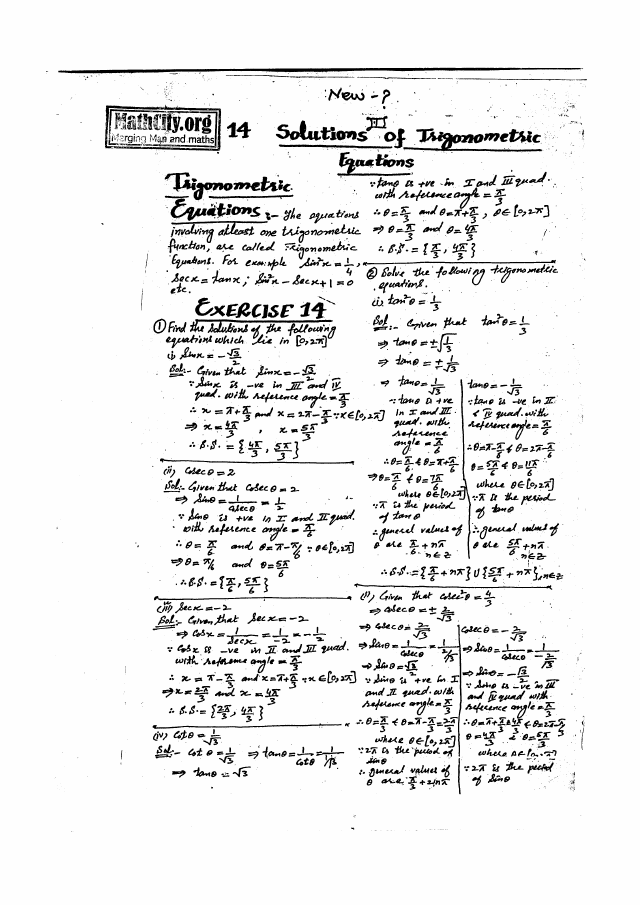 New - ?
MathCity.org
Merging Man and maths
14 Solutions of Trigonometric
Equations
Trigonometric
Equations :- The equations
involving atleast one trigonometric
function, are called Trigonometric
Equations. For example Sin²x = 1/4,
Secx = tanx ; Sin²x - Secx + 1 = 0
etc.
EXERCISE 14
① Find the solutions of the following
equations which lie in [0, 2π]
(i) Sinx = -√3/2
Sol:- Given that Sinx = -√3/2
∵ Sinx is -ve in III and IV
quad. with reference angle = π/3
∴ x = π + π/3 and x = 2π - π/3 ∵ x ∈ [0, 2π]
⇒ x = 4π/3 , x = 5π/3
∴ S.S. = {4π/3, 5π/3}
(ii) Cosecθ = 2
Sol:- Given that Cosecθ = 2
⇒ Sinθ = 1/Cosecθ = 1/2
∵ Sinθ is +ve in I and II quad.
with reference angle = π/6
∴ θ = π/6 and θ = π - π/6 ∵ θ ∈ [0, 2π]
⇒ θ = π/6 and θ = 5π/6
∴ S.S. = {π/6, 5π/6}
(iii) Secx = -2
Sol:- Given that Secx = -2
⇒ Cosx = 1/Secx = 1/-2 = -1/2
∵ Cosx is -ve in II and III quad.
with reference angle = π/3
∴ x = π - π/3 and x = π + π/3 ∵ x ∈ [0, 2π]
⇒ x = 2π/3 and x = 4π/3
∴ S.S. = {2π/3, 4π/3}
(iv) Cotθ = 1/√3
Sol:- Cotθ = 1/√3 ⇒ tanθ = 1/Cotθ = 1/1/√3
⇒ tanθ = √3
∵ tanθ is +ve in I and III quad.
with reference angle = π/3
∴ θ = π/3 and θ = π + π/3 , θ ∈ [0, 2π]
⇒ θ = π/3 and θ = 4π/3
∴ S.S. = {π/3, 4π/3}
② Solve the following trigonometric
equations.
(i) tan²θ = 1/3
Sol:- Given that tan²θ = 1/3
⇒ tanθ = ±√1/3
⇒ tanθ = ± 1/√3
⇒ tanθ = 1/√3
∵ tanθ is +ve
in I and III
quad. with
reference
angle = π/6
∴ θ = π/6 & θ = π + π/6
⇒ θ = π/6 & θ = 7π/6
where θ ∈ [0, 2π]
∵ π is the period
of tanθ
∴ general values of
θ are π/6 + nπ
n ∈ Z
tanθ = -1/√3
∵ tanθ is -ve in II
& IV quad. with
reference angle = π/6
∴ θ = π - π/6 & θ = 2π - π/6
θ = 5π/6 & θ = 11π/6
where θ ∈ [0, 2π]
∵ π is the period
of tanθ
∴ general values of
θ are 5π/6 + nπ
n ∈ Z
∴ S.S. = {π/6 + nπ} ∪ {5π/6 + nπ}, n ∈ Z
(ii) Given that Cosec²θ = 4/3
⇒ Cosecθ = ± 2/√3
⇒ Cosecθ = 2/√3
⇒ Sinθ = 1/Cosecθ = 1/2/√3
⇒ Sinθ = √3/2
∵ Sinθ is +ve in I
and II quad. with
reference angle = π/3
∴ θ = π/3 & θ = π - π/3 = 2π/3
where θ ∈ [0, 2π]
∵ 2π is the period of
Sinθ
∴ general values of
θ are π/3 + 2nπ
Cosecθ = -2/√3
⇒ Sinθ = 1/Cosecθ = 1/-2/√3
⇒ Sinθ = -√3/2
∵ Sinθ is -ve in III
and IV quad with
reference angle = π/3
∴ θ = π + π/3 = 4π/3 & θ = 2π - π/3
θ = 4π/3 & θ = 5π/3
where θ ∈ [0, 2π]
∵ 2π is the period
of Sinθ